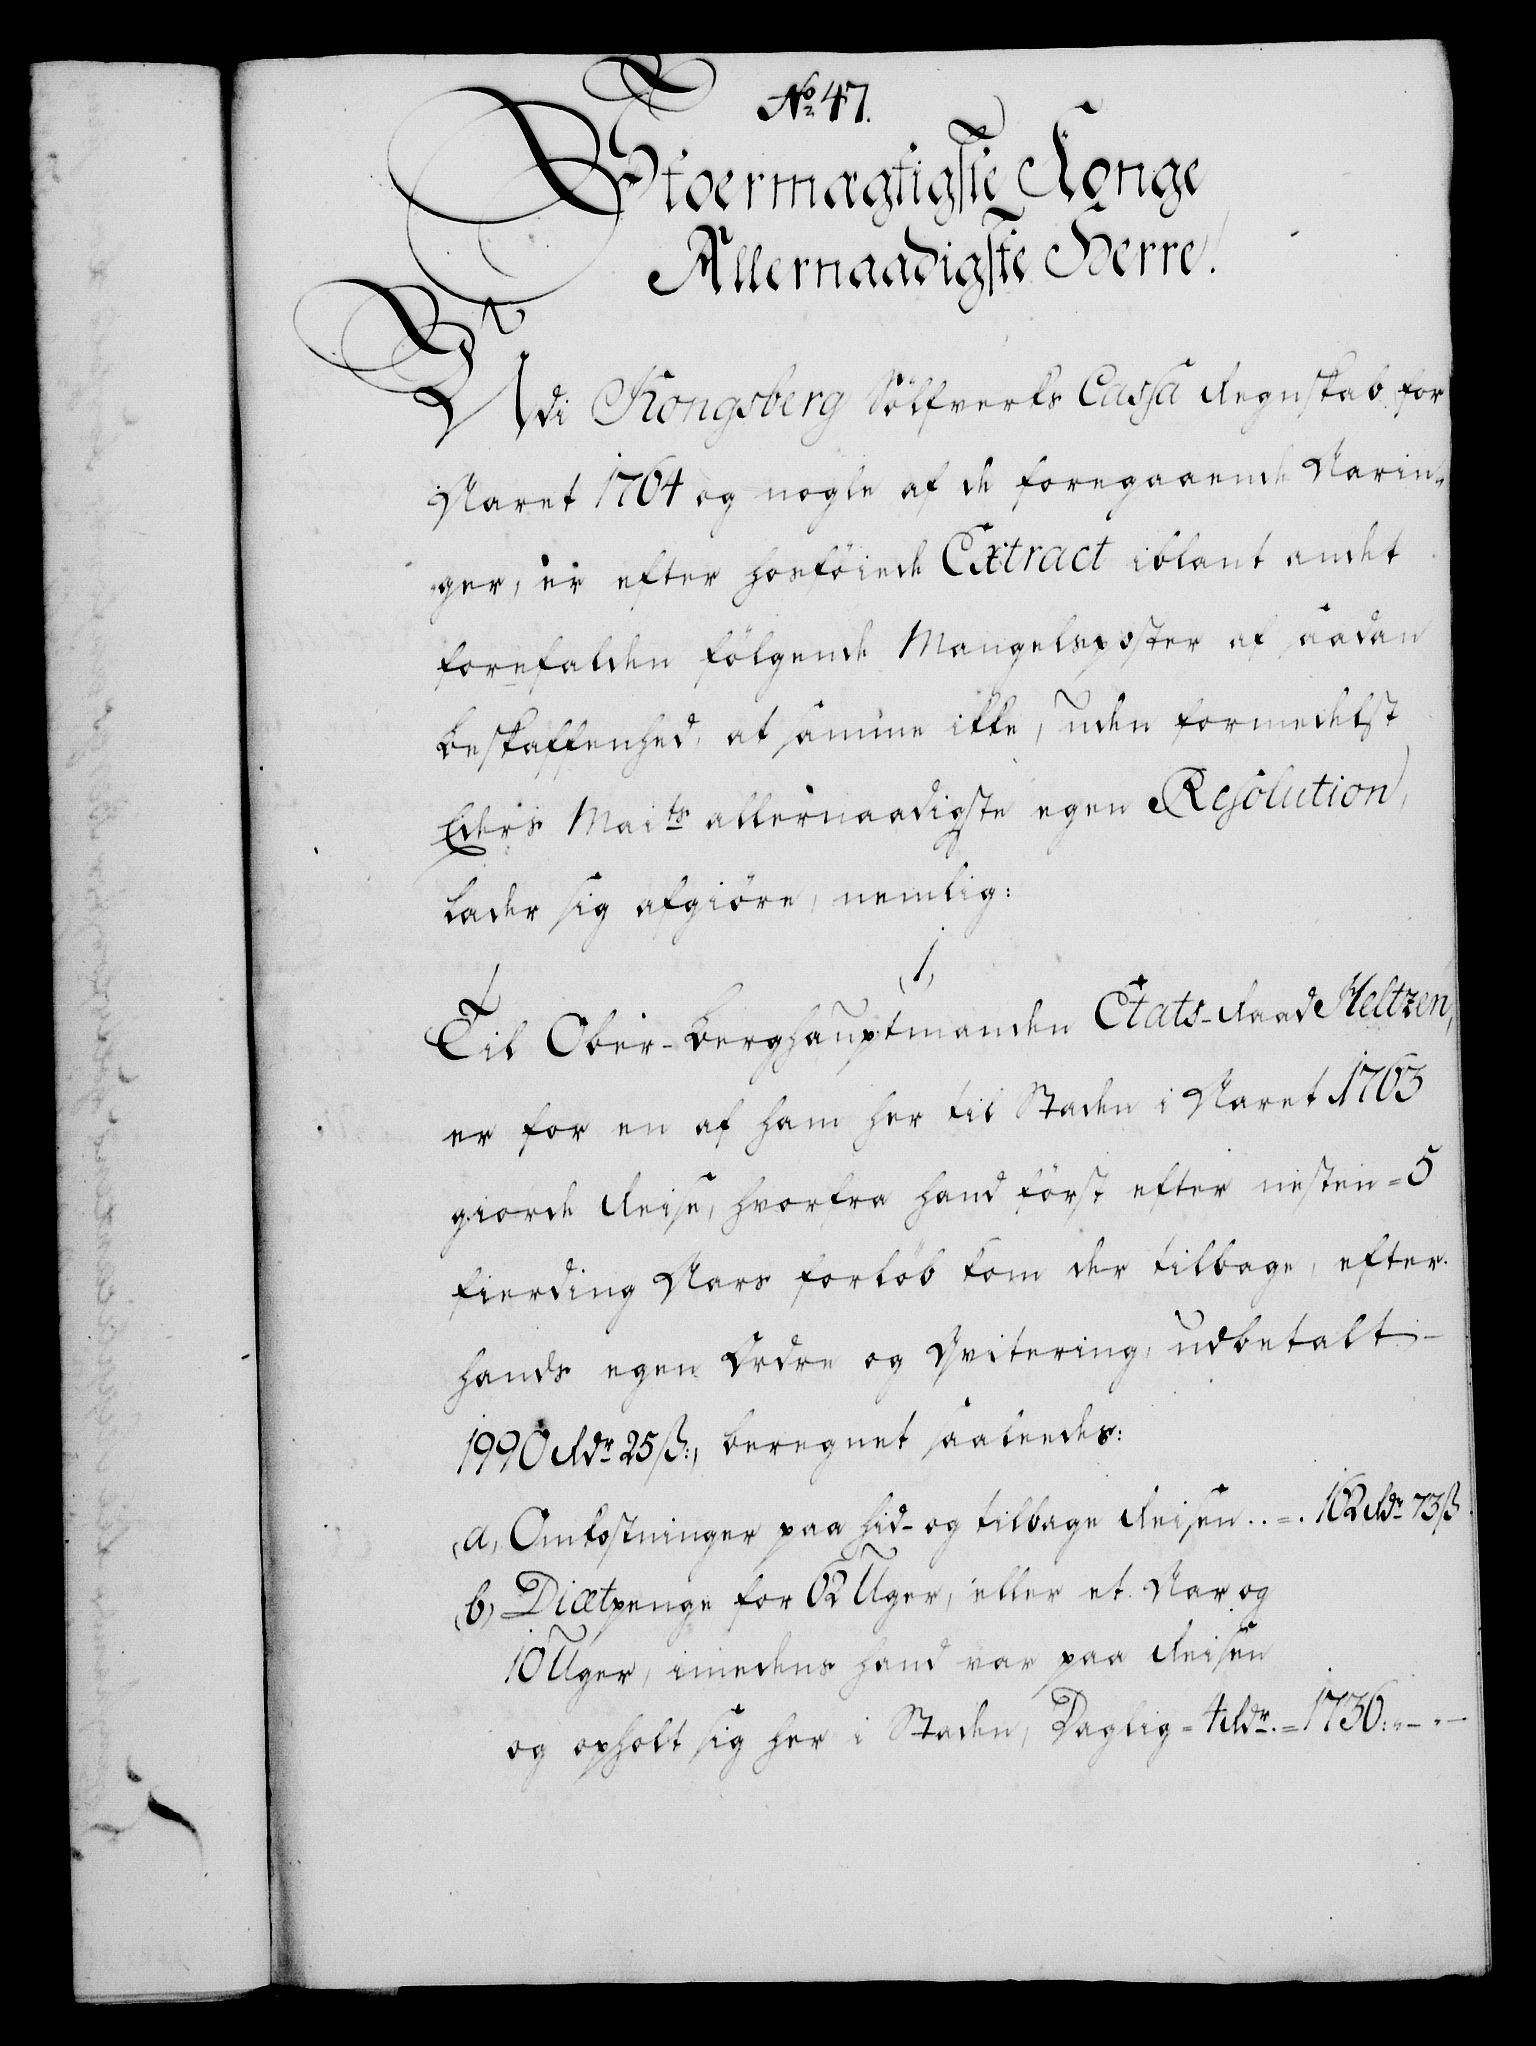 No. 47.
Stoermægtigste Konge
Allernaadigste Herre.
Udi Kongsberg Sölfverks Cassa Regnskab for
Aaret 1764 og nogle af de foregaaende Aarin-
ger, er efter hosföiede Extract iblant andet
forefalden fölgende Mangelsposter af saadan
beskaffenhed, at samme ikke, uden formedelst
Eders Maits allernaadigste egen Resolution,
lader sig afgiöre, nemlig:
1,
Til Ober-Berghauptmanden Etats-Raad Heltzen,
er for en af ham her til Staden i Aaret 1763
giorde Reise, hvorfra hand först efter nesten = 5
fierding Aars forlöb kom der tilbage, efter
hands egen Ordre og Qvitering, udbetalt
1990 Rdr 25 ß:, beregnet saaledes:
a, Omkostninger paa hid- og tilbage Reisen . . = . 162 Rdr 73 ß
b, Diætpenge for 62 Uger, eller et Aar og
10 Uger, imedens hand var paa Reisen
og opholt sig her i Staden, Daglig = 4 Rdr. = 1736: " — " —